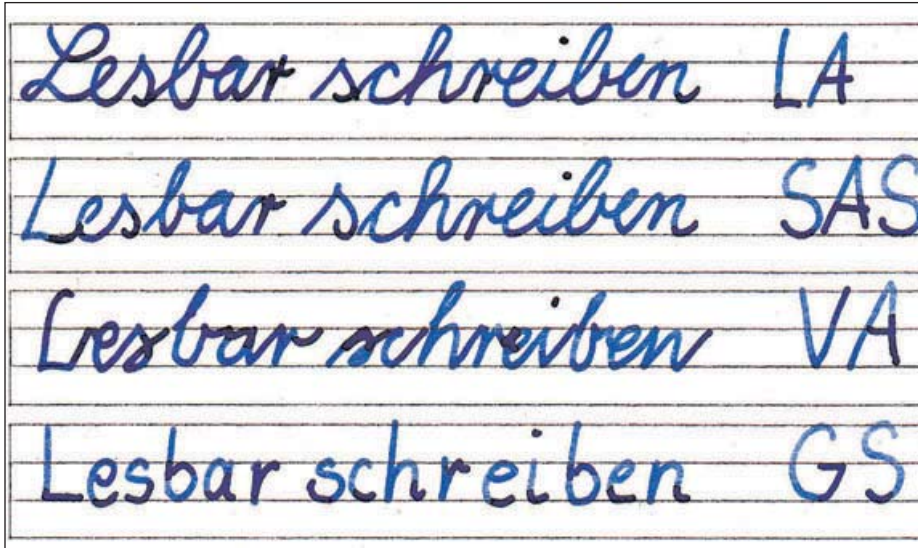 Lesbar schreiben LA
Lesbar schreiben SAS
Lesbar schreiben VA
Lesbar schreiben GS